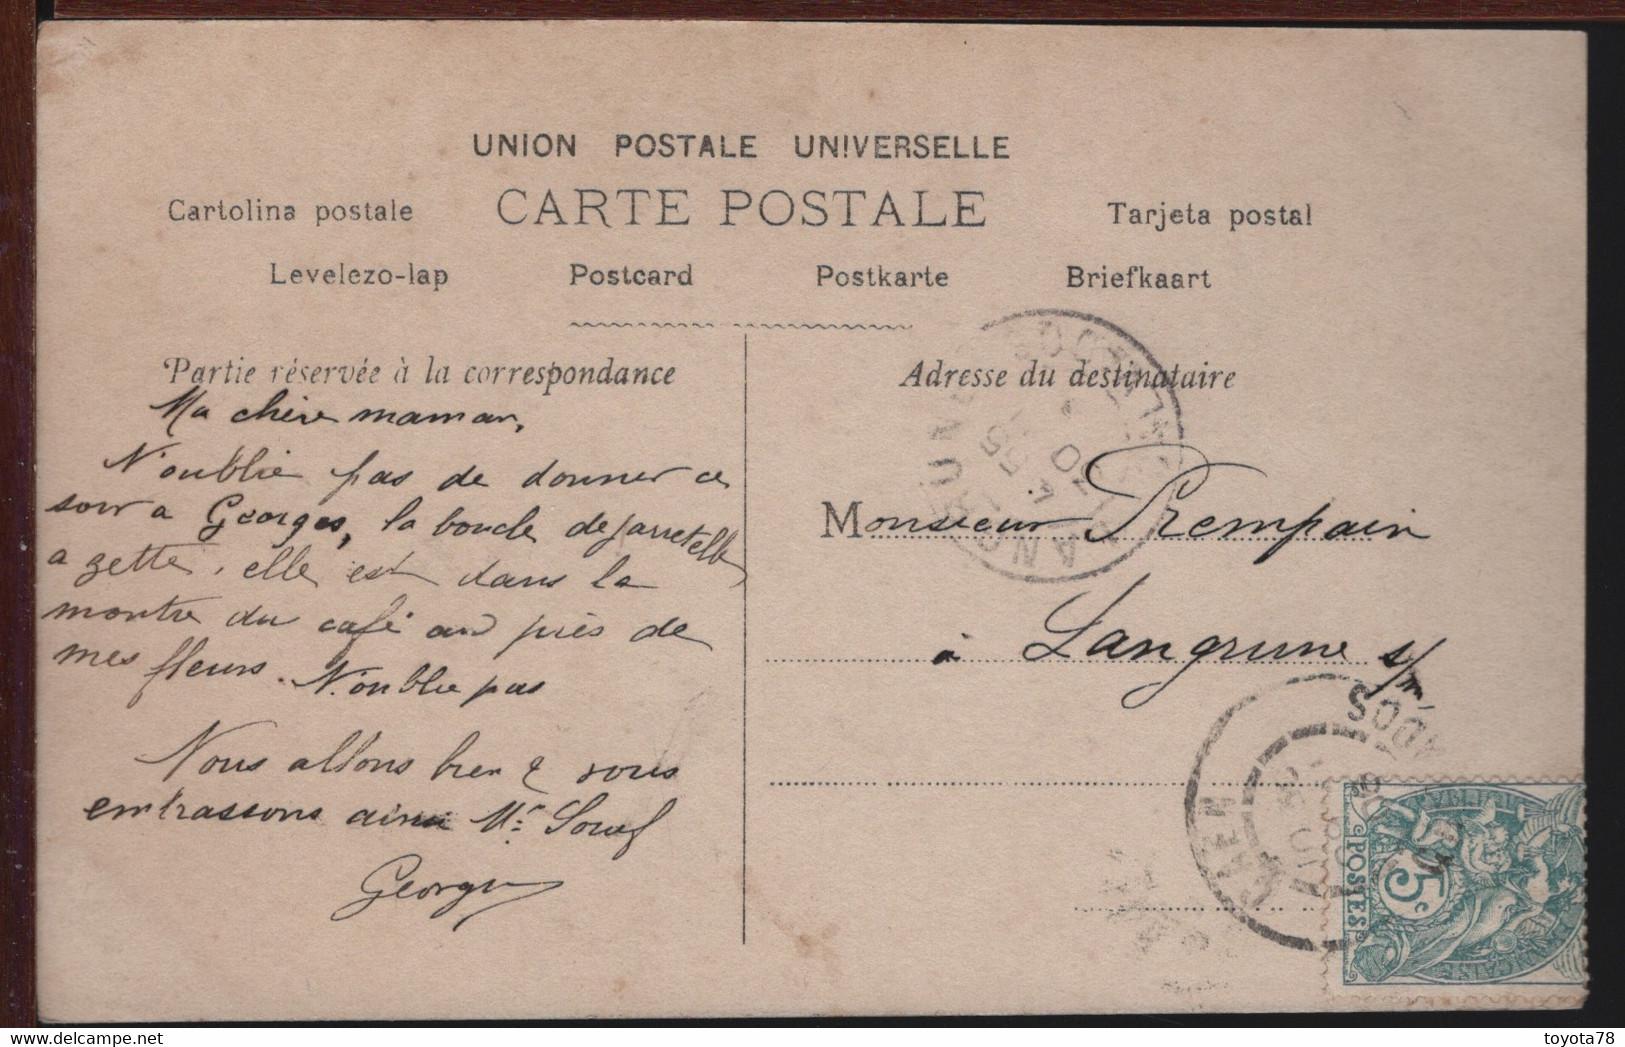 UNION POSTALE UNIVERSELLE
Cartolina postale CARTE POSTALE Tarjeta postal
Levelezo-lap Postcard Postkarte Briefkaart
Partie réservée à la correspondance
Ma chère maman,
N'oublie pas de donner ce
soir a Georges, la boucle de jarretelle
a zette, elle est dans la
montre du café près de
mes fleurs. N'oublie pas
Nous allons bien & vous
embrassons ainsi Mr
Georges
Adresse du destinataire
Monsieur Prempain
à Langrune s/m
LANGRUNE CALVADOS
CAEN CALVADOS
POSTES 5c
toyota78